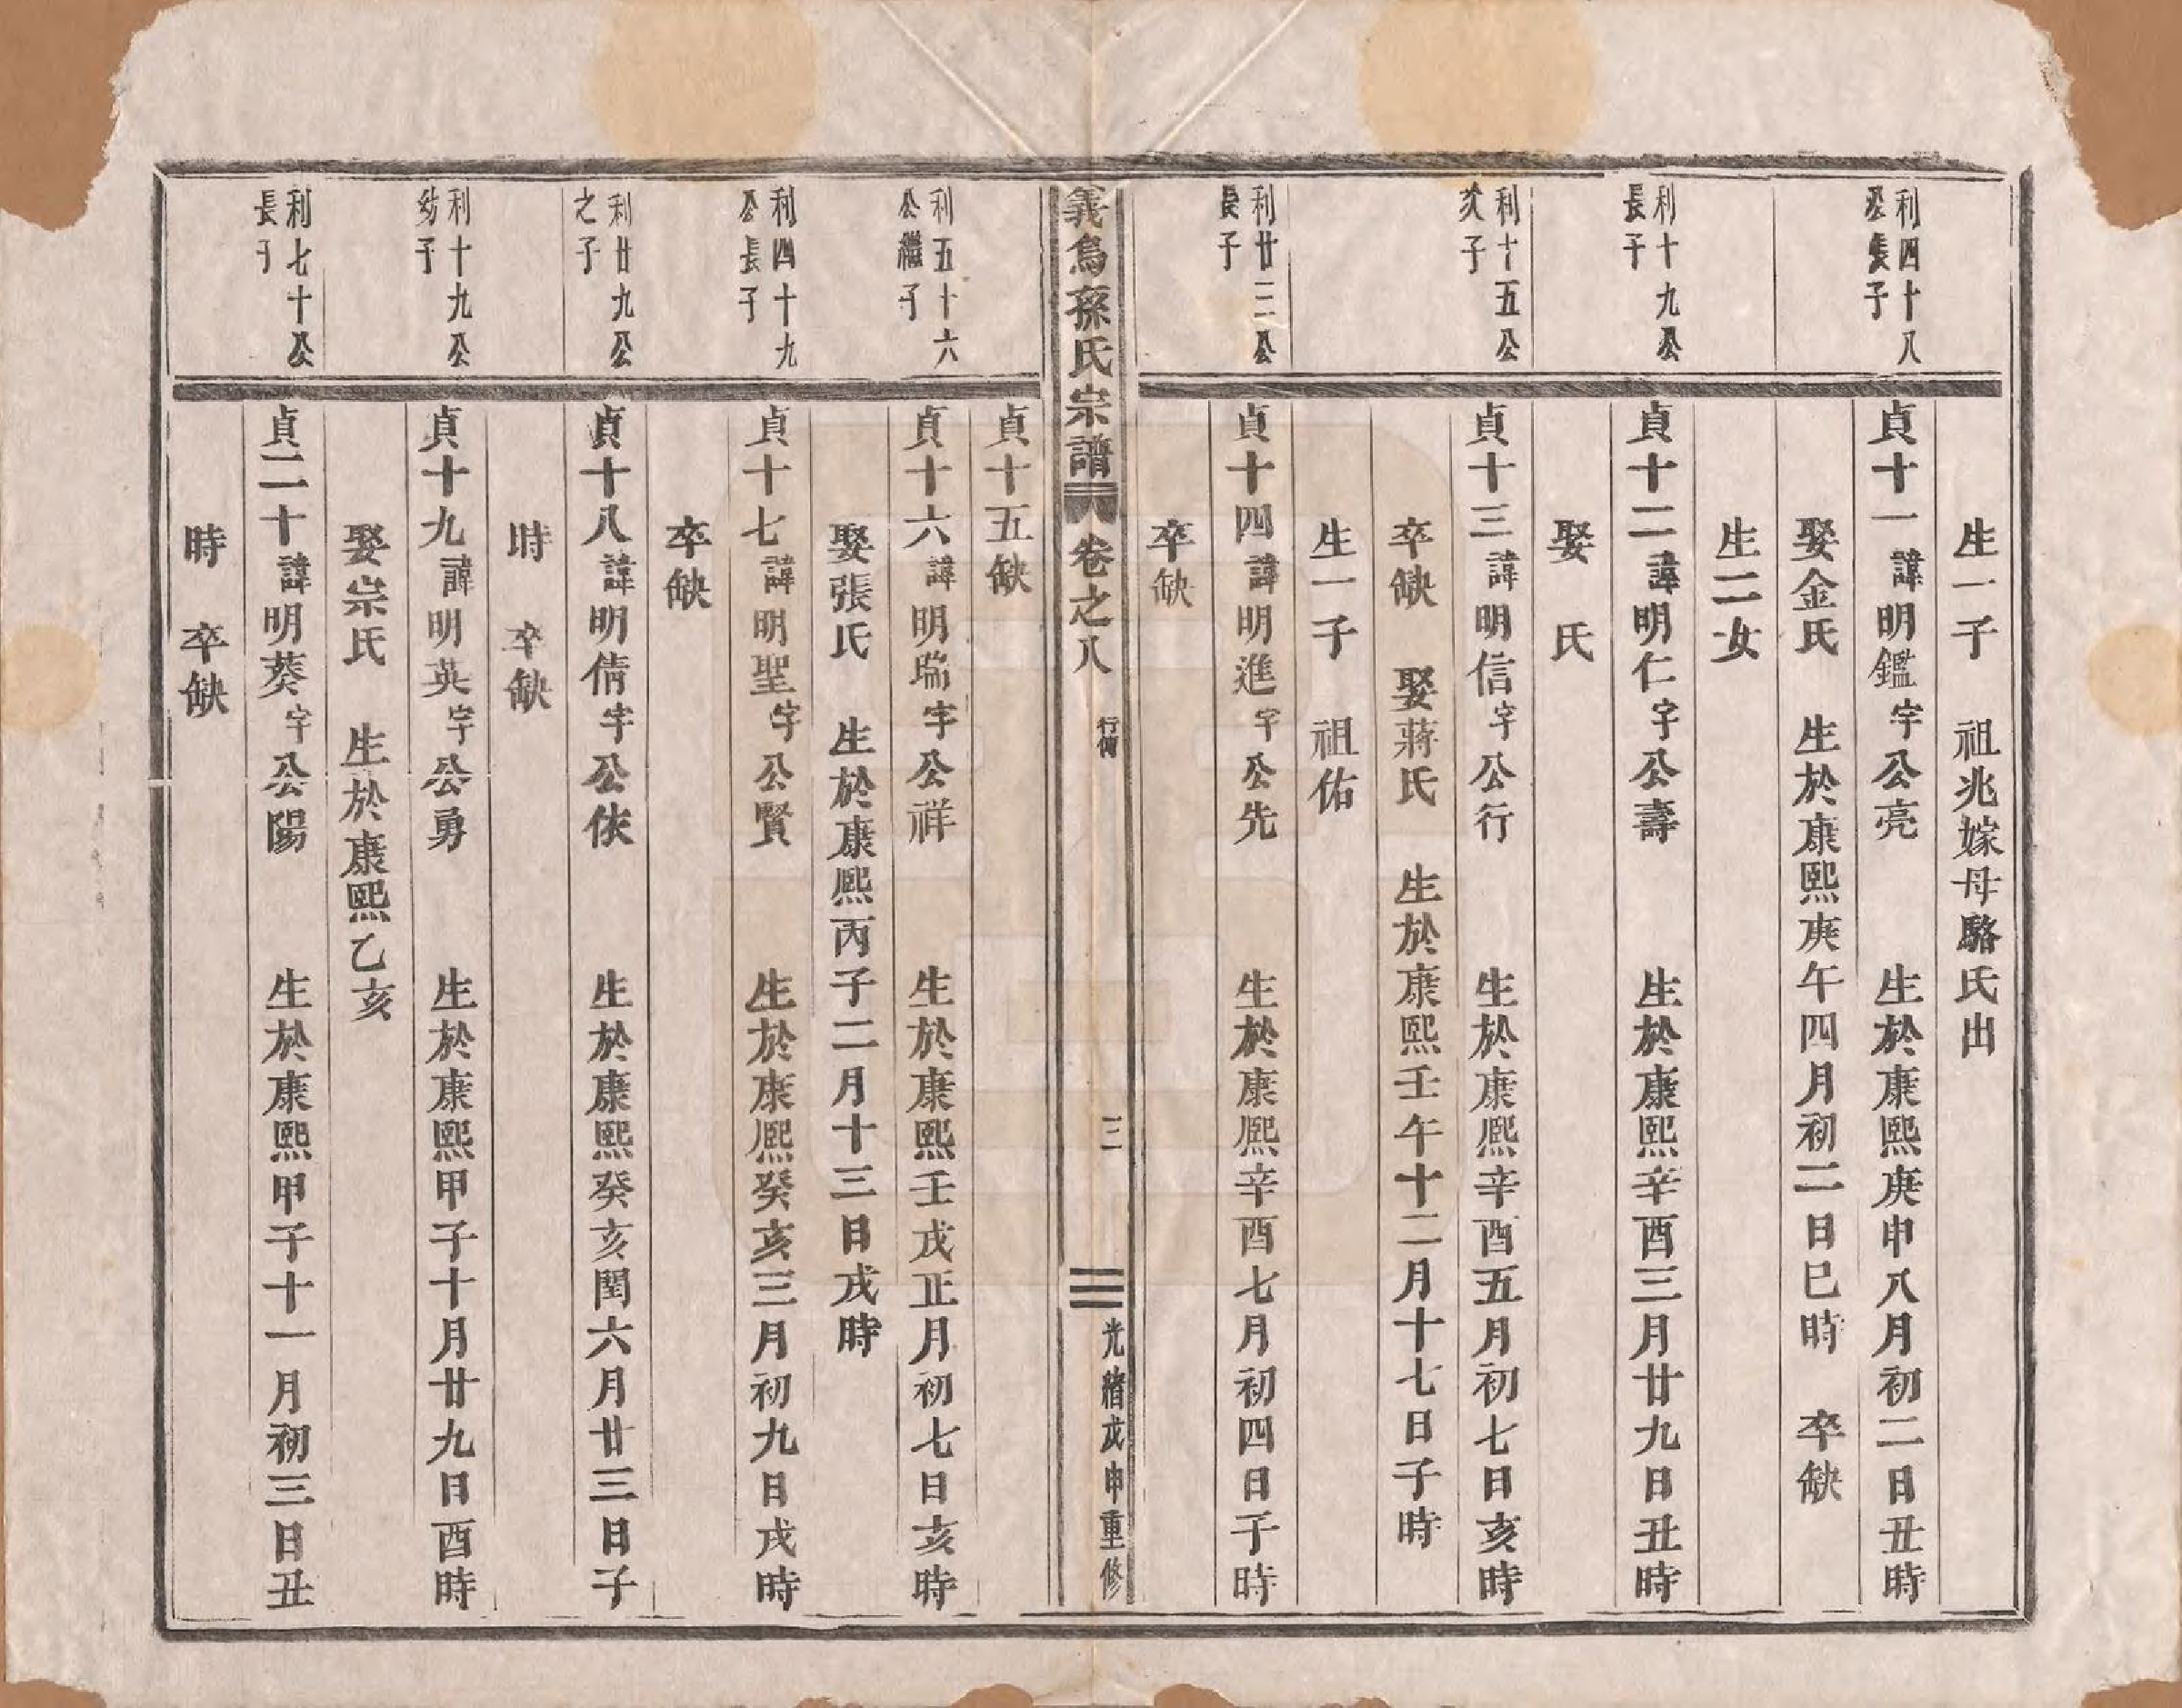 生一子　祖兆嫁母駱氏出
利四十八
公長子
貞十一諱明鑑字公亮　生於康熙庚申八月初二日丑時
娶金氏　生於康熙庚午四月初二日巳時　卒缺
生二女
利十九公
長子
貞十二諱明仁字公壽　生於康熙辛酉三月廿九日丑時
娶　氏
利十五公
次子
貞十三諱明信字公行　生於康熙辛酉五月初七日亥時
卒缺　娶蔣氏　生於康熙壬午十二月十七日子時
生一子　祖佑
利廿三公
長子
貞十四諱明進字公先　生於康熙辛酉七月初四日子時
卒缺
義烏孫氏宗譜　卷之八　行傳　三　光緒戊申重修
貞十五缺
利五十六
公繼子
貞十六諱明瑞字公祥　生於康熙壬戌正月初七日亥時
娶張氏　生於康熙丙子二月十三日戌時
利四十九
公長子
貞十七諱明聖字公賢　生於康熙癸亥三月初九日戌時
卒缺
利廿九公
之子
貞十八諱明倩字公俠　生於康熙癸亥閏六月廿三日子
時　卒缺
利十九公
幼子
貞十九諱明英字公勇　生於康熙甲子十月廿九日酉時
娶宗氏　生於康熙乙亥
利七十公
長子
貞二十諱明葵字公陽　生於康熙甲子十一月初三日丑
時　卒缺